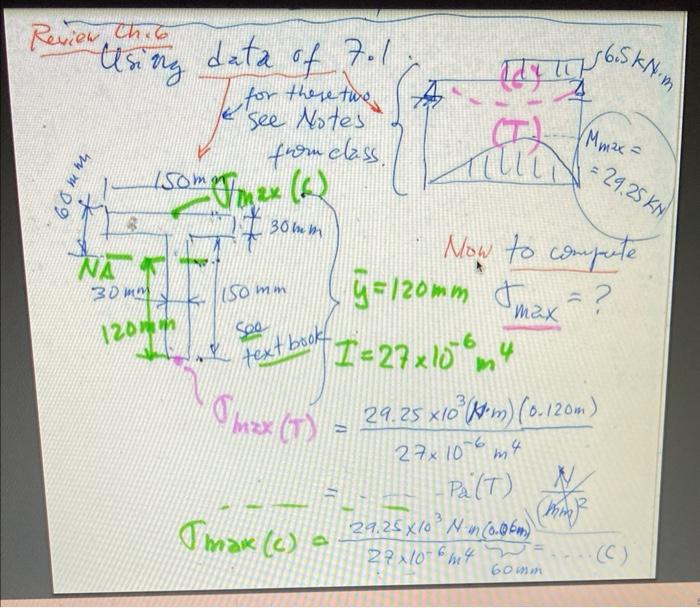 Review Ch.6
Using data of 7.1.
for these two,
see Notes
from class.
6.5 kN·m
(C)
(T)
Mmax =
= 29.25 kN
60 mm
150 mm
σmax (C)
30 mm
NA
30 mm
150 mm
120 mm
see
textbook
Now to compute
σmax = ?
ȳ = 120 mm
I = 27 x 10⁻⁶ m⁴
σmax (T) = 29.25 x 10³ (N·m) (0.120m)
27 x 10⁻⁶ m⁴
= - - - - Pa (T) N
(mm)²
σmax (C) = 29.25 x 10³ N·m (0.06m)
27 x 10⁻⁶ m⁴ = ..... (C)
60 mm